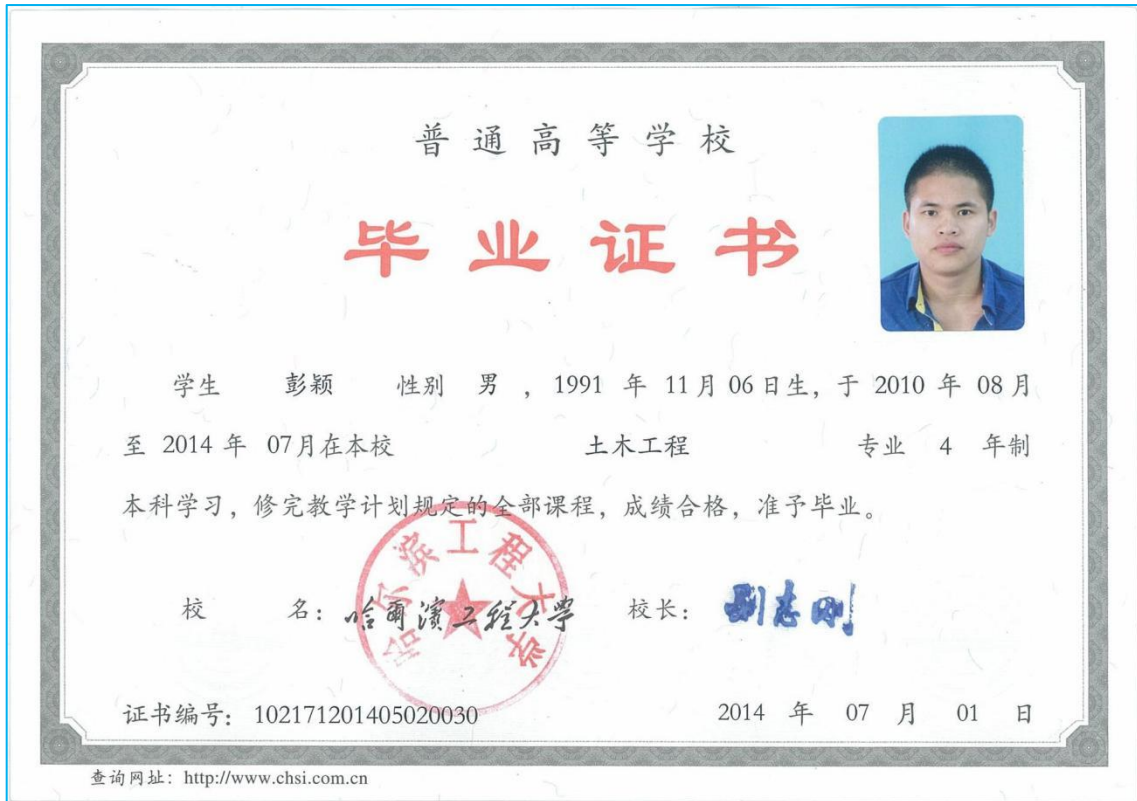 普通高等学校
毕业证书
学生 彭颖 性别 男 ，1991 年 11月 06日生，于 2010 年 08月
至 2014 年 07月在本校 土木工程 专业 4 年制
本科学习，修完教学计划规定的全部课程，成绩合格，准予毕业。
校 名：哈爾濱工程大學 校长：刘志刚
哈尔滨工程大学
证书编号：102171201405020030 2014 年 07 月 01 日
查询网址：http://www.chsi.com.cn